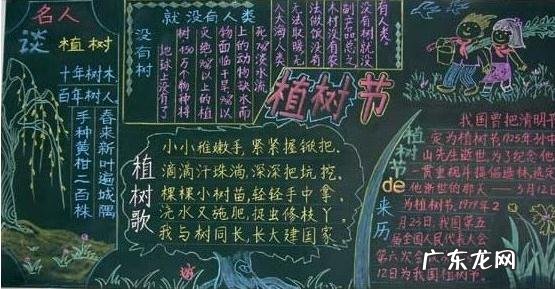 名人
谈植树
十年树木
百年树人
手种黄柑二百株
春来新叶遍城隅
没有树
就没有人类
有人类。
没有树就没
副产品总之
木材没有农
法做饭没有
无法取暖无
人大海人类
死
上的动物缺水而
物面临干旱
灭绝
以上的植
树450万个物种将
地球上没有了
植树节
植树歌
小小稚嫩手,紧紧握锨把,
滴滴汗珠淌,深深把坑挖,
棵棵小树苗,轻轻手中拿,
浇水又施肥,捉虫修枝丫,
我与树同长,长大建国家
植树节de来历
我国曾把清明节
定为植树节1925年孙中
山先生逝世为了纪念他
一贯重视并提倡造林,遂定
他逝世的那天——3月12日
为植树节,1979年2
月23日,我国第五
届全国人民代表大会
第六次会
12日为我国植树节
广东龙网